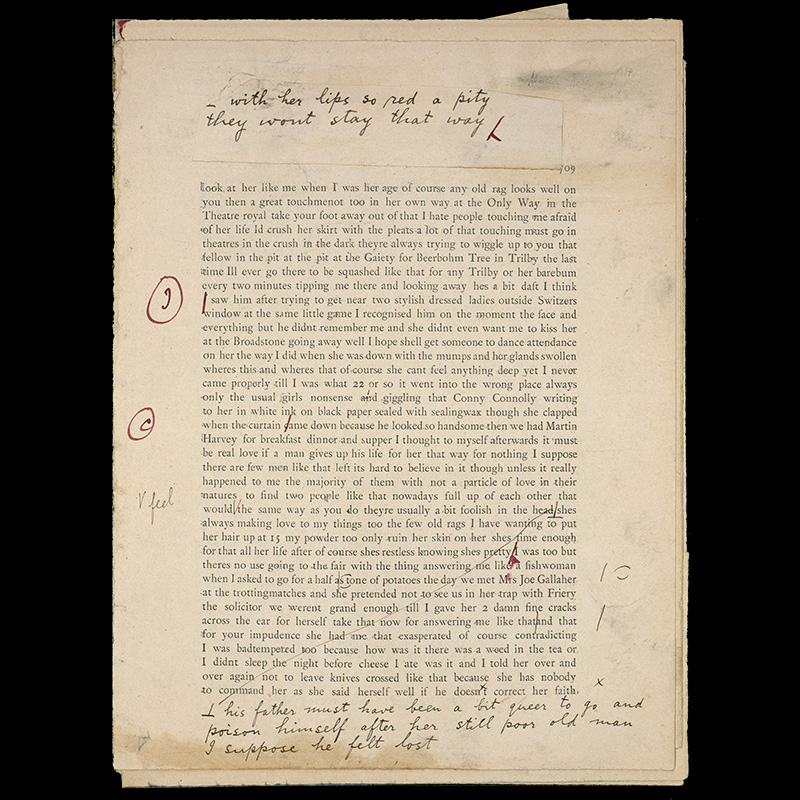 ⊥ with her lips so red a pity
they wont stay that way
709
look at her like me when I was her age of course any old rag looks well on
you then a great touchmenot too in her own way at the Only Way in the
Theatre royal take your foot away out of that I hate people touching me afraid
of her life Id crush her skirt with the pleats a lot of that touching must go in
theatres in the crush in the dark theyre always trying to wiggle up to you that
fellow in the pit at the pit at the Gaiety for Beerbohm Tree in Trilby the last
time Ill ever go there to be squashed like that for any Trilby or her barebum
every two minutes tipping me there and looking away hes a bit daft I think
I saw him after trying to get near two stylish dressed ladies outside Switzers
window at the same little game I recognised him on the moment the face and
everything but he didnt remember me and she didnt even want me to kiss her
at the Broadstone going away well I hope shell get someone to dance attendance
on her the way I did when she was down with the mumps and her glands swollen
wheres this and wheres that of course she cant feel anything deep yet I never
came properly till I was what 22 or so it went into the wrong place always
only the usual girls nonsense and giggling that Conny Connolly writing
to her in white ink on black paper sealed with sealingwax though she clapped
c
when the curtain came down because he looked so handsome then we had Martin
Harvey for breakfast dinner and supper I thought to myself afterwards it must
be real love if a man gives up his life for her that way for nothing I suppose
there are few men like that left its hard to believe in it though unless it really
happened to me the majority of them with not a particle of love in their
natures to find two people like that nowadays full up of each other that
feel
would the same way as you do theyre usually a bit foolish in the head shes
always making love to my things too the few old rags I have wanting to put
her hair up at 15 my powder too only ruin her skin on her shes time enough
for that all her life after of course shes restless knowing shes pretty I was too but
theres no use going to the fair with the thing answering me like a fishwoman
when I asked to go for a half a stone of potatoes the day we met Mrs Joe Gallaher
at the trottingmatches and she pretended not to see us in her trap with Friery
the solicitor we werent grand enough till I gave her 2 damn fine cracks
across the ear for herself take that now for answering me like that and that
for your impudence she had me that exasperated of course contradicting
I was badtempered too because how was it there was a weed in the tea or
I didnt sleep the night before cheese I ate was it and I told her over and
over again not to leave knives crossed like that because she has nobody
to command her as she said herself well if he doesnt correct her faith
⊥ his father must have been a bit queer to go and
poison himself after her still poor old man
I suppose he felt lost